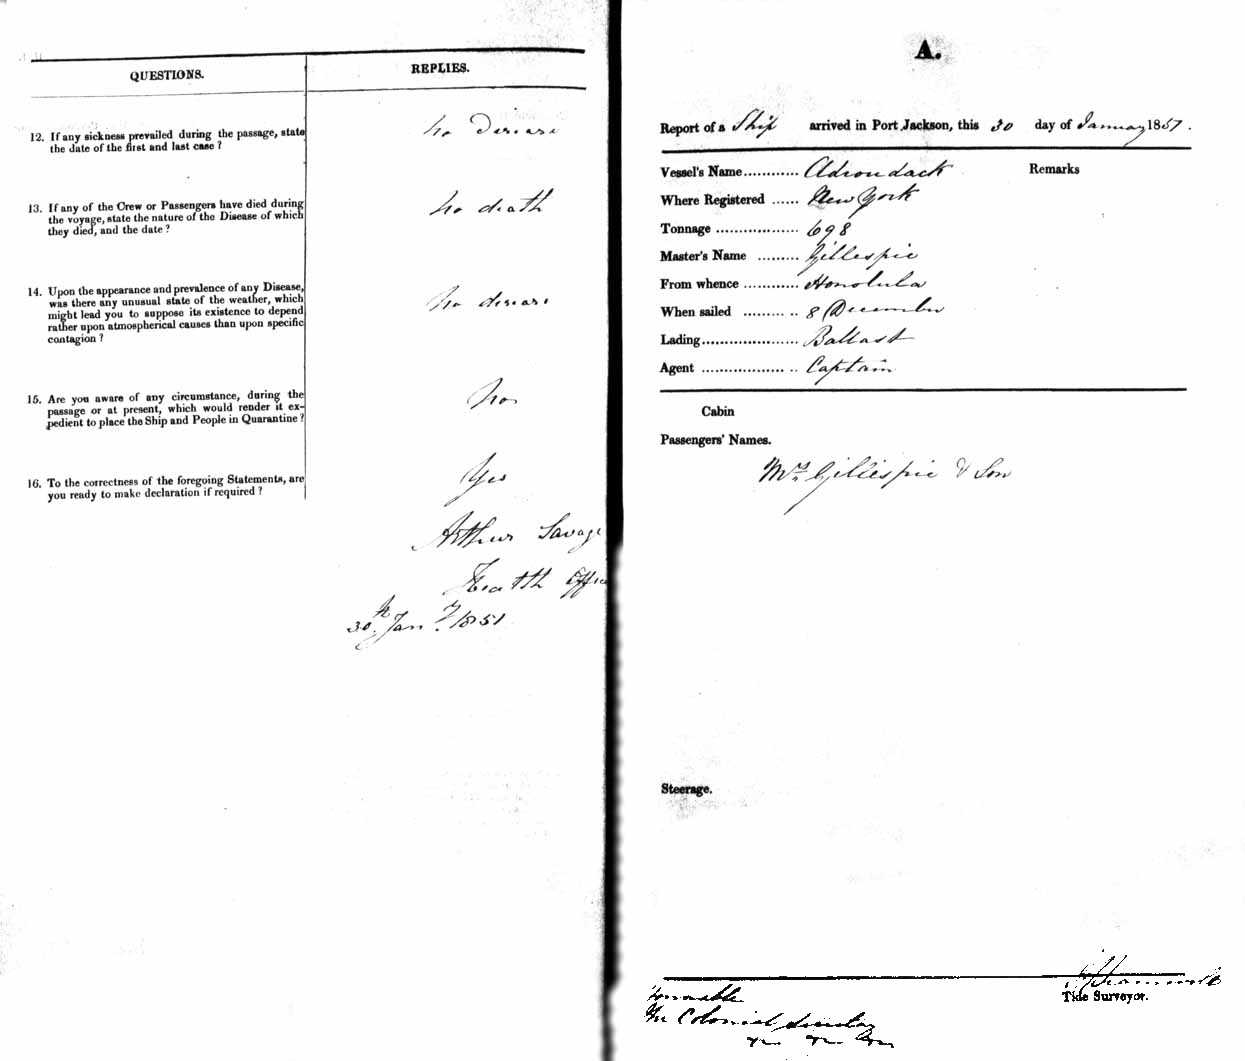 QUESTIONS.
REPLIES.
12. If any sickness prevailed during the passage, state
the date of the first and last case ?
no disease
13. If any of the Crew or Passengers have died during
the voyage, state the nature of the Disease of which
they died, and the date ?
no death
14. Upon the appearance and prevalence of any Disease,
was there any unusual state of the weather, which
might lead you to suppose its existence to depend
rather upon atmospherical causes than upon specific
contagion ?
no disease
15. Are you aware of any circumstance, during the
passage or at present, which would render it ex-
pedient to place the Ship and People in Quarantine ?
No
16. To the correctness of the foregoing Statements, are
you ready to make declaration if required ?
Yes
Arthur Savage
Health Offic
30th Jany. 1851
A.
Report of a Ship arrived in Port Jackson, this 30 day of January 1851.
Vessel's Name............ Adrondack
Remarks
Where Registered ...... New York
Tonnage .................. 698
Master's Name ......... Gillespie
From whence ............ Honolulu
When sailed ........... 8 December
Lading..................... Ballast
Agent .................... Captain
Cabin
Passengers' Names.
Mrs. Gillespie & Son
Steerage.
Tide Surveyor.
Honorable
The Colonial Secretary